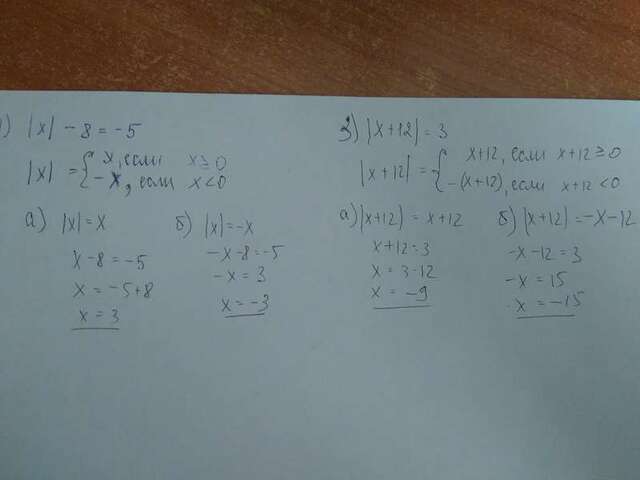 1) |x| - 8 = -5
|x| = { x, если x ≥ 0
-x, если x < 0
а) |x| = x
x - 8 = -5
x = -5+8
x = 3
б) |x| = -x
-x - 8 = -5
-x = 3
x = -3
3) |x+12| = 3
|x+12| = { x+12, если x+12 ≥ 0
-(x+12), если x+12 < 0
а) |x+12| = x+12
x+12 = 3
x = 3-12
x = -9
б) |x+12| = -x-12
-x-12 = 3
-x = 15
x = -15